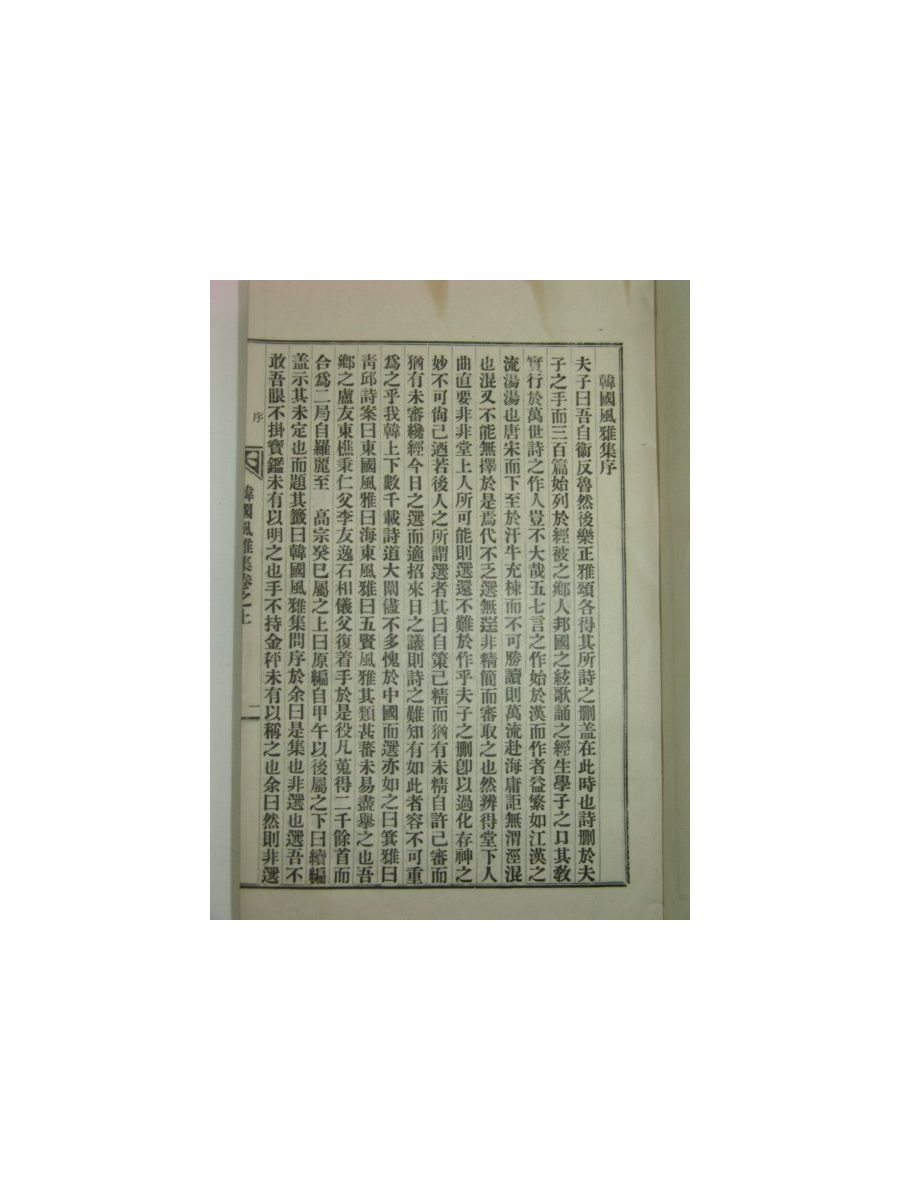 韓國風雅集序
夫子曰吾自衞反魯然後樂正雅頌各得其所詩之刪盖在此時也詩刪於夫
子之手而三百篇始列於經被之鄕人邦國之絃歌誦之經生學子之口其敎
實行於萬世詩之作人豈不大哉五七言之作始於漢而作者益繁如江漢之
流湯湯也唐宋而下至於汗牛充棟而不可勝讀則萬流赴海庸詎無渭涇混
也混又不能無擇於是焉代不乏選無選非精簡而審取之也然辨得堂下人
曲直要非非堂上人所可能則選還不難於作乎夫子之刪卽以過化存神之
妙不可尙已迺若後人之所謂選者其曰自策己精而猶有未精自許己審而
猶有未審纔經今日之選而適招來日之議則詩之難知有如此者容不可重
爲之乎我韓上下數千載詩道大闡儘不多愧於中國而選亦如之曰箕雅曰
靑邱詩案曰東國風雅曰海東風雅曰五賢風雅其類甚蕃未易盡擧之也吾
鄕之盧友東樵秉仁父李友逸石相儀父復着手於是役凡蒐得二千餘首而
合爲二局自羅麗至 高宗癸巳屬之上曰原編自甲午以後屬之下曰續編
盖示其未定也而題其籤曰韓國風雅集問序於余曰是集也非選也選吾不
敢吾眼不掛寶鑑未有以明之也手不持金秤未有以稱之也余曰然則非選
序
韓國風雅集卷之上
一